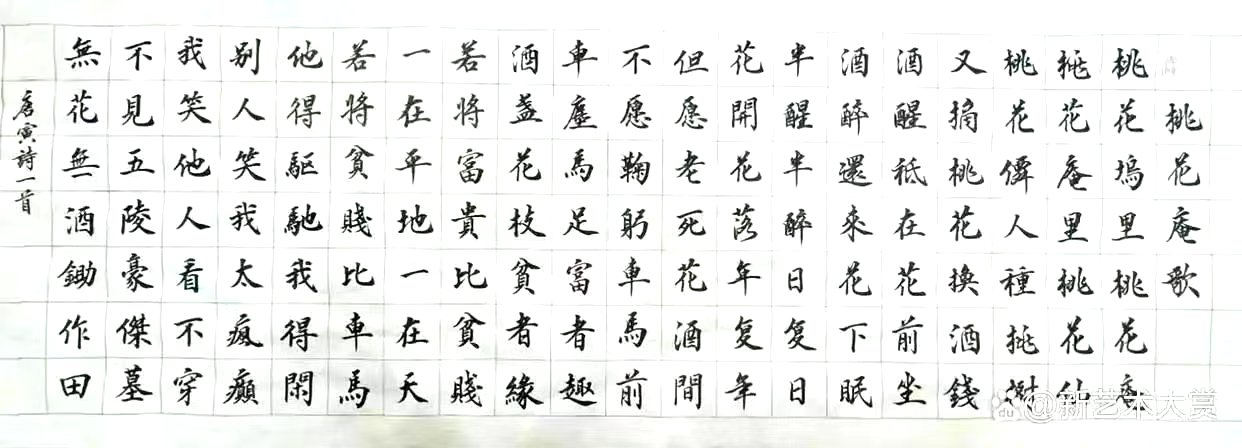 桃花庵歌
桃花塢里桃花庵
桃花庵里桃花仙
桃花僊人種桃
又摘桃花換酒錢
酒醒祗在花前坐
酒醉還來花下眠
半醒半醉日复日
花開花落年复年
但愿老死花酒間
不愿鞠躬車馬前
車塵馬足富者趣
酒盞花枝貧者緣
若將富貴比貧賤
一在平地一在天
若將貧賤比車馬
他得驅馳我得閑
别人笑我太瘋癲
我笑他人看不穿
不見五陵豪傑墓
無花無酒鋤作田
唐寅詩一首
du @新艺术大赏